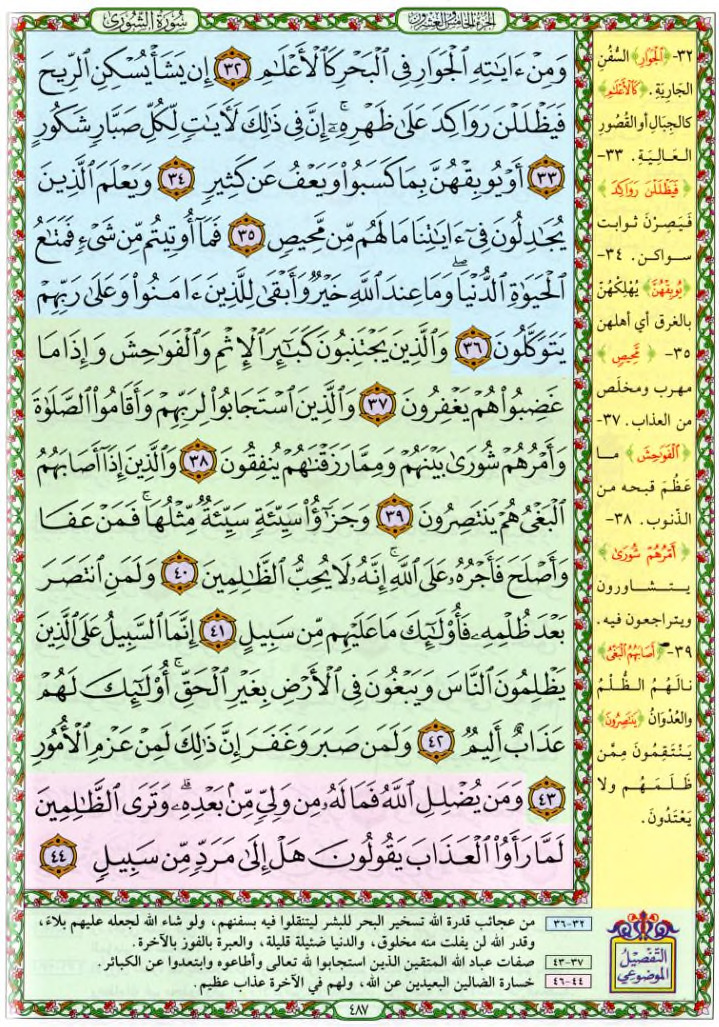 سُورَةُ الشُّورَىٰ
الجزء الخامس والعشرون
وَمِنْ ءَايَـٰتِهِ ٱلْجَوَارِ فِى ٱلْبَحْرِ كَٱلْأَعْلَـٰمِ ٣٢ إِن يَشَأْ يُسْكِنِ ٱلرِّيحَ
فَيَظْلَلْنَ رَوَاكِدَ عَلَىٰ ظَهْرِهِۦٓ ۚ إِنَّ فِى ذَٰلِكَ لَـَٔايَـٰتٍ لِّكُلِّ صَبَّارٍ شَكُورٍ
٣٣ أَوْ يُوبِقْهُنَّ بِمَا كَسَبُوا۟ وَيَعْفُ عَن كَثِيرٍ ٣٤ وَيَعْلَمَ ٱلَّذِينَ
يُجَـٰدِلُونَ فِىٓ ءَايَـٰتِنَا مَا لَهُم مِّن مَّحِيصٍ ٣٥ فَمَآ أُوتِيتُم مِّن شَىْءٍ فَمَتَـٰعُ
ٱلْحَيَوٰةِ ٱلدُّنْيَا ۖ وَمَا عِندَ ٱللَّهِ خَيْرٌ وَأَبْقَىٰ لِلَّذِينَ ءَامَنُوا۟ وَعَلَىٰ رَبِّهِمْ
يَتَوَكَّلُونَ ٣٦ وَٱلَّذِينَ يَجْتَنِبُونَ كَبَـٰٓئِرَ ٱلْإِثْمِ وَٱلْفَوَٰحِشَ وَإِذَا مَا
غَضِبُوا۟ هُمْ يَغْفِرُونَ ٣٧ وَٱلَّذِينَ ٱسْتَجَابُوا۟ لِرَبِّهِمْ وَأَقَامُوا۟ ٱلصَّلَوٰةَ
وَأَمْرُهُمْ شُورَىٰ بَيْنَهُمْ وَمِمَّا رَزَقْنَـٰهُمْ يُنفِقُونَ ٣٨ وَٱلَّذِينَ إِذَآ أَصَابَهُمُ
ٱلْبَغْىُ هُمْ يَنتَصِرُونَ ٣٩ وَجَزَٰٓؤُا۟ سَيِّئَةٍ سَيِّئَةٌ مِّثْلُهَا ۖ فَمَنْ عَفَا
وَأَصْلَحَ فَأَجْرُهُۥ عَلَى ٱللَّهِ ۚ إِنَّهُۥ لَا يُحِبُّ ٱلظَّـٰلِمِينَ ٤٠ وَلَمَنِ ٱنتَصَرَ
بَعْدَ ظُلْمِهِۦ فَأُو۟لَـٰٓئِكَ مَا عَلَيْهِم مِّن سَبِيلٍ ٤١ إِنَّمَا ٱلسَّبِيلُ عَلَى ٱلَّذِينَ
يَظْلِمُونَ ٱلنَّاسَ وَيَبْغُونَ فِى ٱلْأَرْضِ بِغَيْرِ ٱلْحَقِّ ۚ أُو۟لَـٰٓئِكَ لَهُمْ
عَذَابٌ أَلِيمٌ ٤٢ وَلَمَن صَبَرَ وَغَفَرَ إِنَّ ذَٰلِكَ لَمِنْ عَزْمِ ٱلْأُمُورِ
٤٣ وَمَن يُضْلِلِ ٱللَّهُ فَمَا لَهُۥ مِن وَلِىٍّ مِّنۢ بَعْدِهِۦ ۗ وَتَرَى ٱلظَّـٰلِمِينَ
لَمَّا رَأَوُا۟ ٱلْعَذَابَ يَقُولُونَ هَلْ إِلَىٰ مَرَدٍّ مِّن سَبِيلٍ ٤٤
٣٢- ﴿الْجَوَارِ﴾ السُّفُنِ
الجَارِيَةِ. ﴿كَالْأَعْلَامِ﴾
كالجِبَالِ أو القُصُورِ
العَالِيَةِ. ٣٣-
﴿فَيَظْلَلْنَ رَوَاكِدَ﴾
فَيَصِرْنَ ثوابت
سواكن. ٣٤-
﴿يُوبِقْهُنَّ﴾ يُهْلِكْهُنَّ
بالغرق أي أهلهن
٣٥- ﴿مَّحِيصٍ﴾
مهرب ومخلَص
من العذاب. ٣٧-
﴿الْفَوَاحِشَ﴾ ما
عَظُمَ قبحه من
الذّنوب. ٣٨-
﴿أَمْرُهُمْ شُورَىٰ﴾
يتشاورون
ويتراجعون فيه.
٣٩- ﴿أَصَابَهُمُ الْبَغْىُ﴾
نالَهُمُ الظُّلْمُ
والعُدْوَانُ ﴿يَنتَصِرُونَ﴾
يَنْتَقِمُونَ مِمَّن
ظَلَمَهُم ولا
يَعْتَدُونَ.
التَّفْصِيلُ
المَوْضُوعِي
٣٢-٣٦ من عجائب قدرة الله تسخير البحر للبشر ليتنقلوا فيه بسفنهم، ولو شاء الله لجعله عليهم بلاءً،
وقدر الله لن يفلت منه مخلوق، والدنيا ضئيلة قليلة، والعبرة بالفوز بالآخرة.
٣٧-٤٣ صفات عباد الله المتقين الذين استجابوا لله تعالى وأطاعوه وابتعدوا عن الكبائر.
٤٤-٤٦ خسارة الضالين البعيدين عن الله، ولهم في الآخرة عذاب عظيم.
٤٨٧